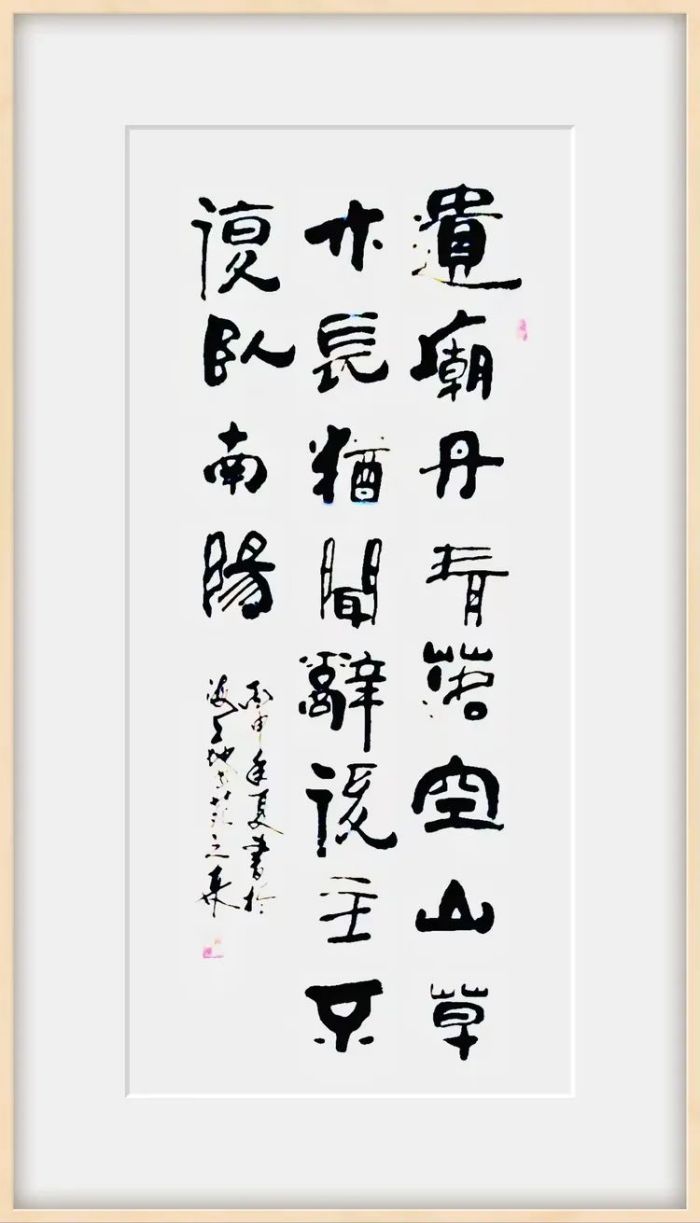 遺廟丹青落空山草
木長猶聞辭後主不
復臥南陽
丙申年夏書於
海上